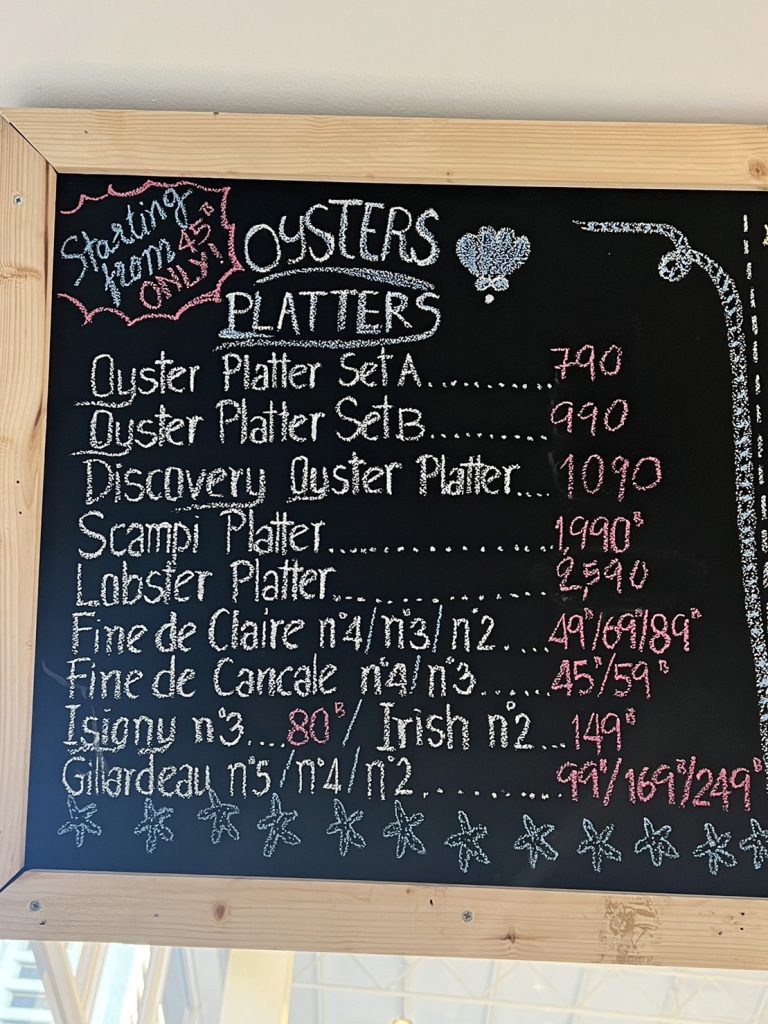 Starting
from 45฿
ONLY!
OYSTERS
PLATTERS
Oyster Platter Set A.............790
Oyster Platter Set B.............990
Discovery Oyster Platter....1090
Scampi Platter......................1,990฿
Lobster Platter......................2,590
Fine de Claire n°4/n°3/n°2.....49฿/69฿/89฿
Fine de Cancale n°4/n°3......45฿/59฿
Isigny n°3....80฿/ Irish n°2...149฿
Gillardeau n°5/n°4/n°2............99฿/169฿/249฿